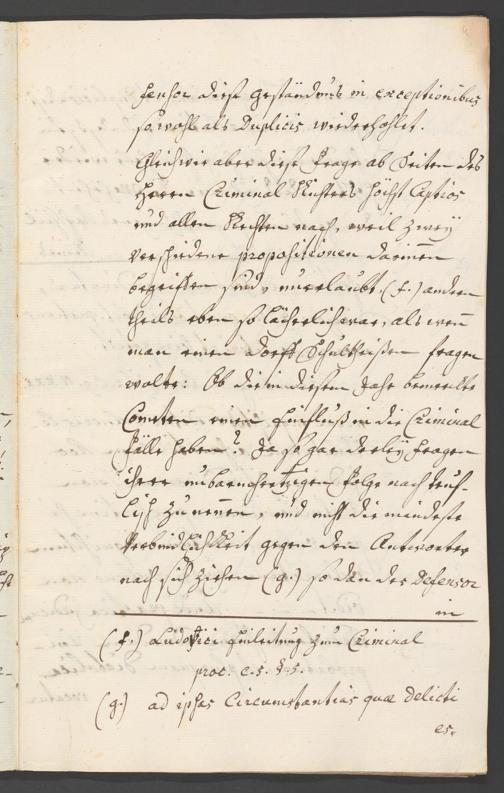 fensor diese Geständnuß in exceptionibus
sowohl als Duplicis wiederhohlet.
Gleichwie aber diese frage ab Seiten des
Herrn Criminal Richters höchst Captios
und allen Rechten nach, weil zwey
verschiedene propositionen darinnen
begriffen sind, unerlaubt, (f.) andern
theils eben so lächerlich war, als wenn
man einen Dorff Schultheißen fragen
wolte: Ob die in diesem Jahr bemerckte
Cometen einen Einfluß in die Criminal
fälle haben? Ja so gar derley fragen
ihrer unbarmhertzigen folge nach teuf-
lisch zu nennen, und nicht die mindeste
Verbindlichkeit gegen den Antworter
nach sich ziehen (g.) so dan des Defensor
in
(f.) Ludovici Einleitung zum Criminal
proc. c. 5. §. 5.
(g.) ad ipsas Circumstantias quæ delicti
es.